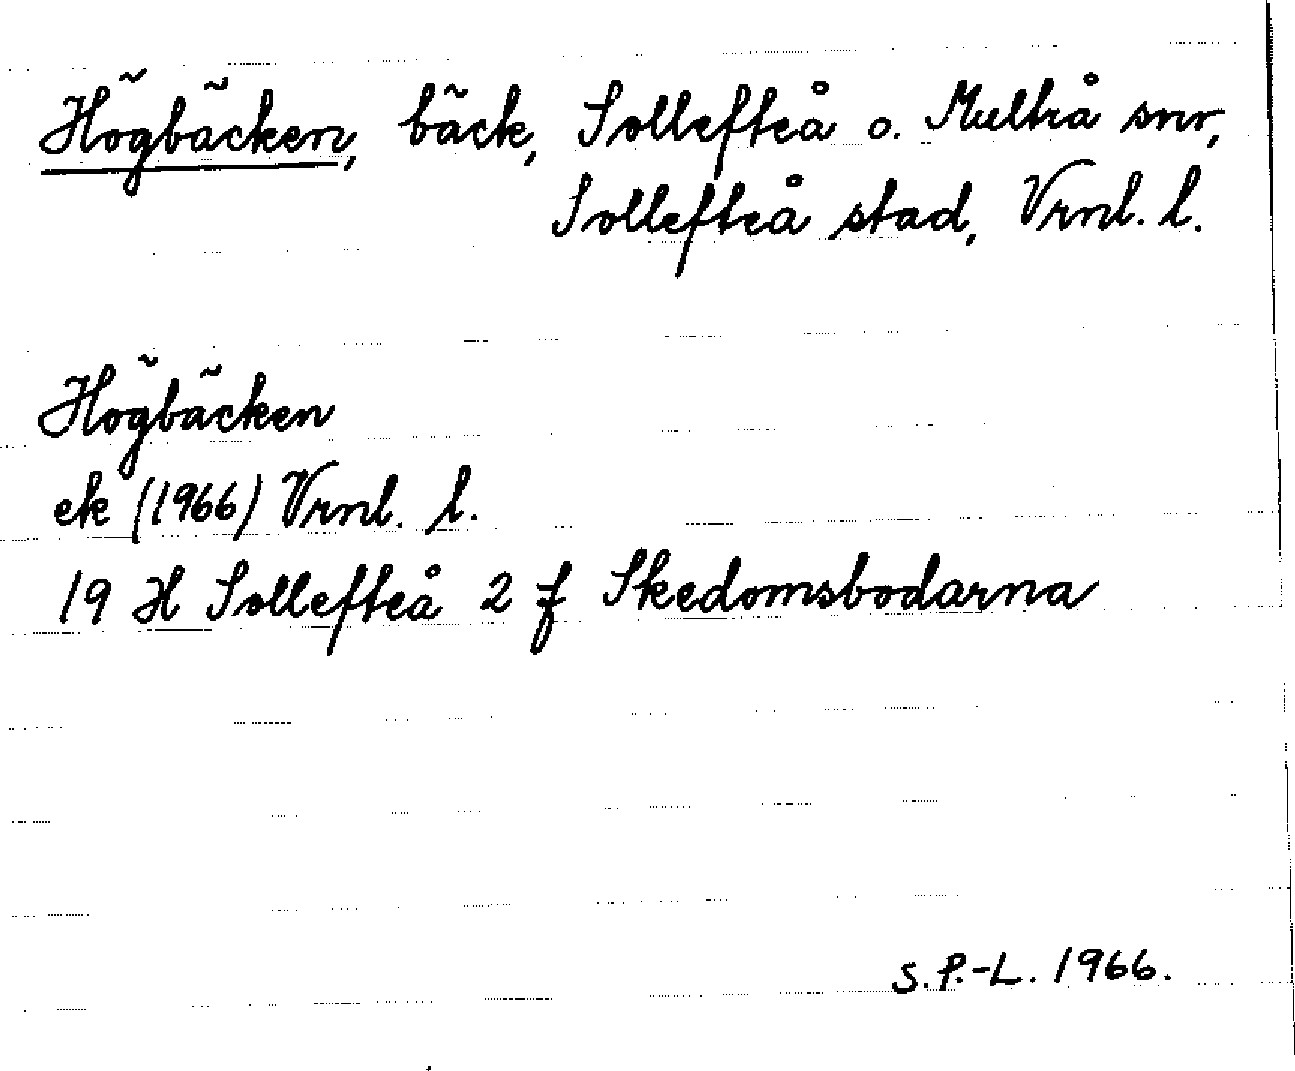 Högbäcken, bäck, Sollefteå o. Multrå snr,
Sollefteå stad, Vrnl. l.
Högbäcken
ek (1966) Vrnl. l.
19 H Sollefteå 2 f Skedomsbodarna
S.P.-L. 1966.